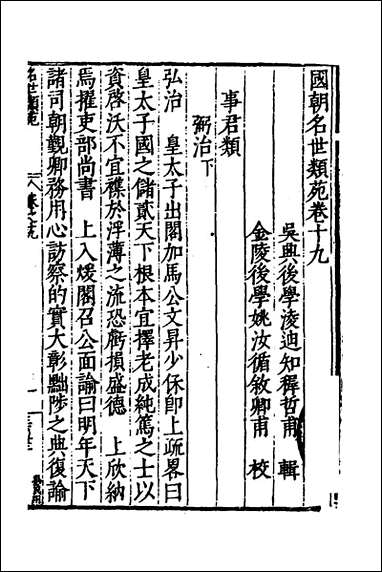 國朝名世類苑卷十九
吳興後學淩迪知穉哲甫 輯
金陵後學姚汝循敘卿甫 校
事君類
弼治下
弘治 皇太子出閣加馬公文昇少保卽上疏畧曰
皇太子國之儲貳天下根本宜擇老成純篤之士以
資啓沃不宜襍於浮薄之流恐虧損盛德 上欣納
焉擢吏部尚書 上入煖閣召公面諭曰明年天下
諸司朝覲卿務用心訪察的實大彰黜陟之典復諭
名世類苑
卷之十九
一